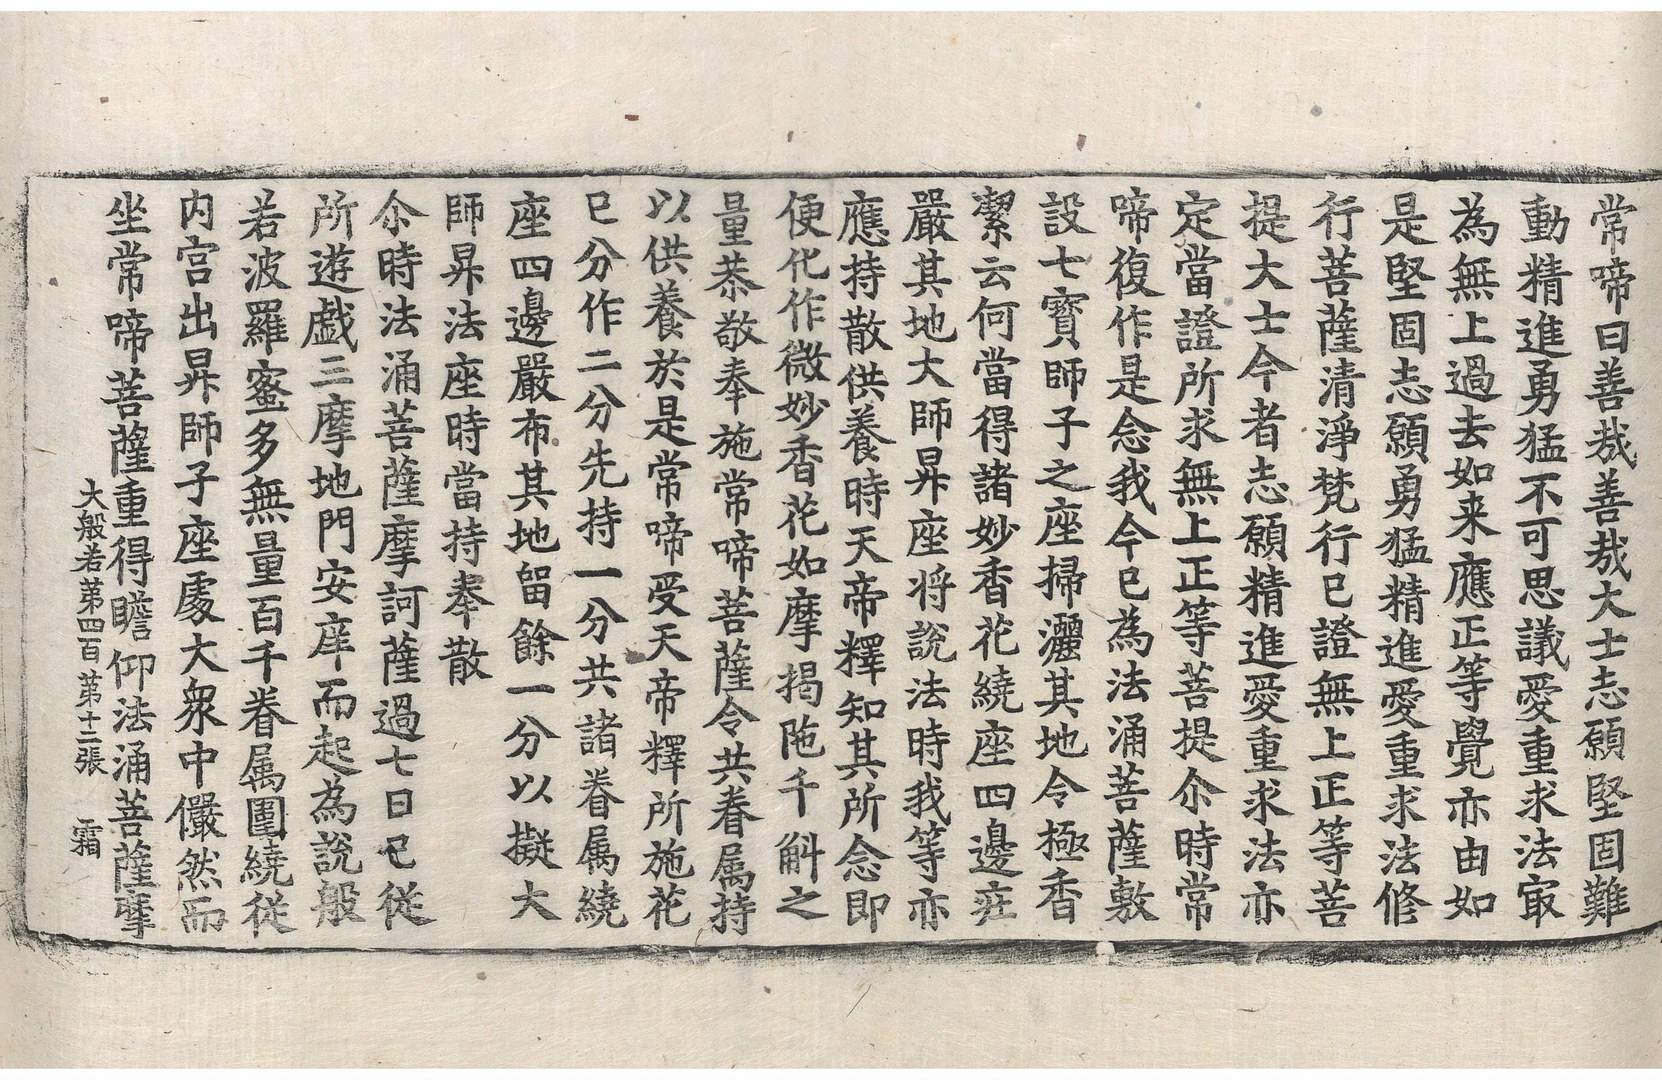 常啼曰善哉善哉大士志願堅固難
動精進勇猛不可思議愛重求法㝡
為無上過去如来應正等覺亦由如
是堅固志願勇猛精進愛重求法修
行菩薩清淨梵行已證無上正等菩
提大士今者志願精進愛重求法亦
定當證所求無上正等菩提尒時常
啼復作是念我今已為法涌菩薩敷
設七寶師子之座掃灑其地令極香
潔云何當得諸妙香花繞座四邊莊
嚴其地大師昇座将說法時我等亦
應持散供養時天帝釋知其所念即
便化作微妙香花如摩揭陁千斛之
量恭敬奉施常啼菩薩令共眷属持
以供養於是常啼受天帝釋所施花
已分作二分先持一分共諸眷属繞
座四邊嚴布其地留餘一分以擬大
師昇法座時當持奉散
尒時法涌菩薩摩訶薩過七日已從
所遊戲三摩地門安庠而起為說般
若波羅蜜多無量百千眷属圍繞從
内宮出昇師子座處大衆中儼然而
坐常啼菩薩重得瞻仰法涌菩薩摩
大般若第四百 第十二張 霜